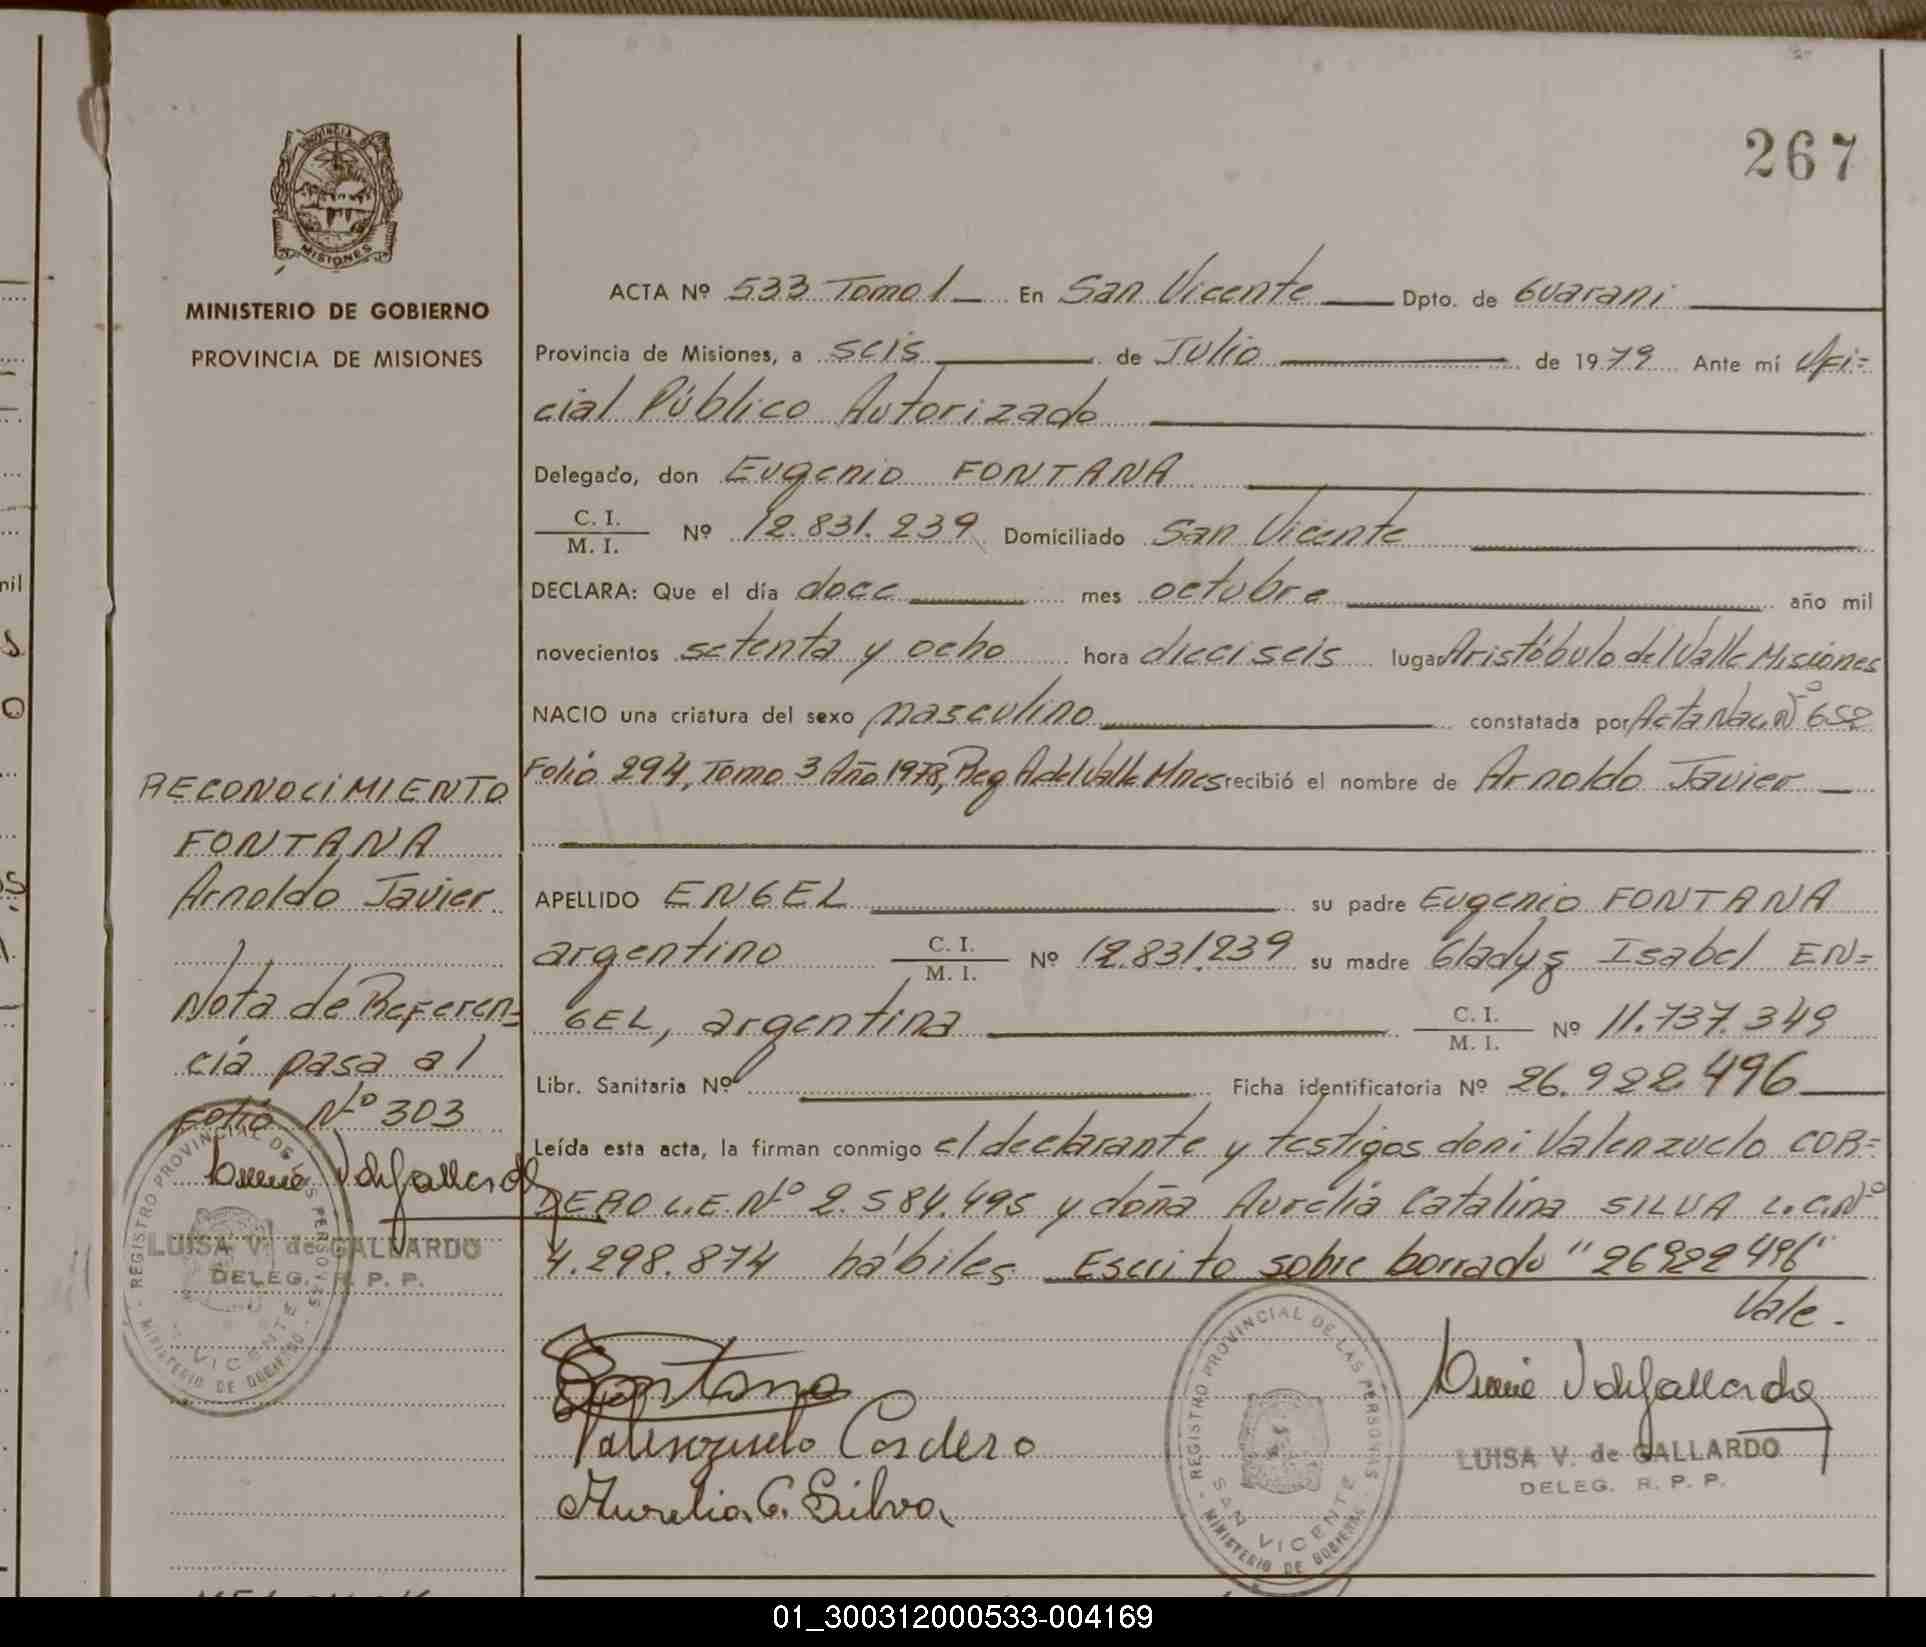 267
PROVINCIA
MISIONES
MINISTERIO DE GOBIERNO
PROVINCIA DE MISIONES
ACTA Nº 533 Tomo 1 En San Vicente Dpto. de Guarani
Provincia de Misiones, a seis de Julio de 1979 Ante mí Ofi=
cial Público Autorizado
Delegado, don Eugenio FONTANA
C. I.
M. I. Nº 12.831.239 Domiciliado San Vicente
DECLARA: Que el día doce mes octubre año mil
novecientos setenta y ocho hora dieciseis lugar Aristóbulo del Valle Misiones
NACIO una criatura del sexo masculino constatada por Acta Nac. Nº 652
Folio 294, Tomo 3 Año 1978, Reg A del Valle Mnes recibió el nombre de Arnoldo Javier
APELLIDO ENGEL su padre Eugenio FONTANA
argentino C. I.
M. I. Nº 12.831.239 su madre Gladys Isabel EN=
GEL, argentina C. I.
M. I. Nº 11.737.349
Libr. Sanitaria Nº Ficha identificatoria Nº 26.922.496
Leída esta acta, la firman conmigo el declarante y testigos don: Valenzuelo COR=
DERO L.E. Nº 2.584.495 y doña Aurelia Catalina SILVA L.C. Nº
4.298.874 hábiles Escrito sobre borrado "26922496"
Vale.
RECONOCIMIENTO
FONTANA
Arnoldo Javier
Nota de Referen=
cia pasa al
Folio Nº 303
LUISA V. de GALLARDO
DELEG. R. P. P.
REGISTRO PROVINCIAL DE LAS PERSONAS
VICENTE
MINISTERIO DE GOBIERNO
Fontana
Valenzuelo Cordero
Aurelia C. Silva
REGISTRO PROVINCIAL DE LAS PERSONAS
SAN VICENTE
MINISTERIO DE GOBIERNO
LUISA V. de GALLARDO
DELEG. R. P. P.
01_300312000533-004169